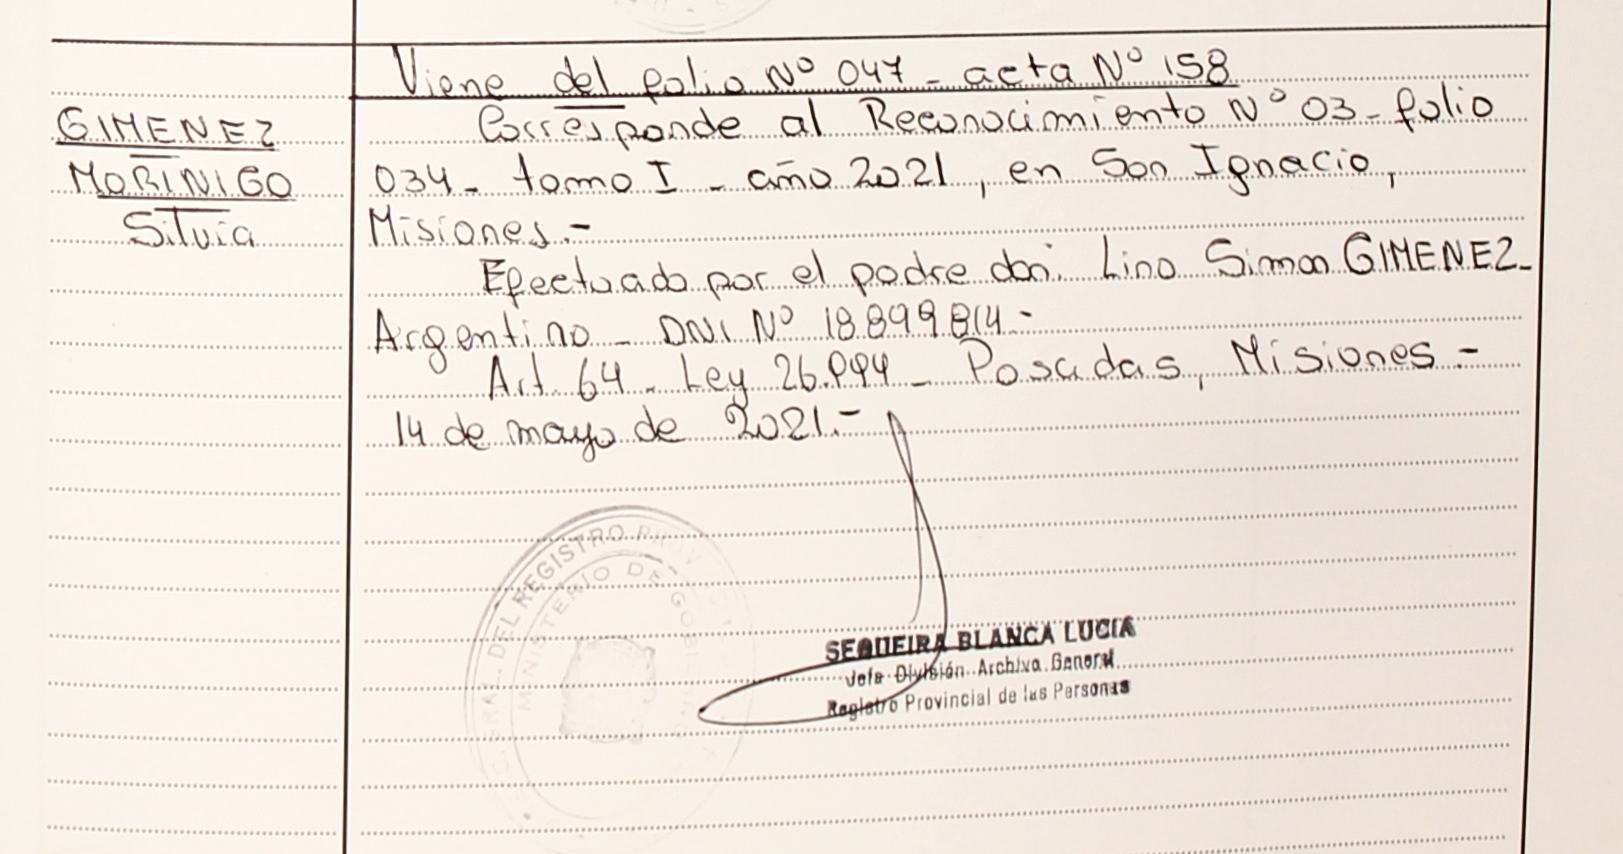 Viene del folio Nº 047 - acta Nº 158
GIMENEZ
MORINIGO
Silvia
Corresponde al Reconocimiento Nº 03 - folio
034 - tomo I - año 2021, en San Ignacio,
Misiones.-
Efectuado por el padre don: Lino Simon GIMENEZ -
Argentino - DNI Nº 18.899.814.-
Art. 64 - Ley 26.994 - Posadas, Misiones.-
14 de mayo de 2021.-
DEL REGISTRO PROV
MINISTERIO DE GOBIERNO
SEQUEIRA BLANCA LUCIA
Jefa División Archivo General
Registro Provincial de las Personas